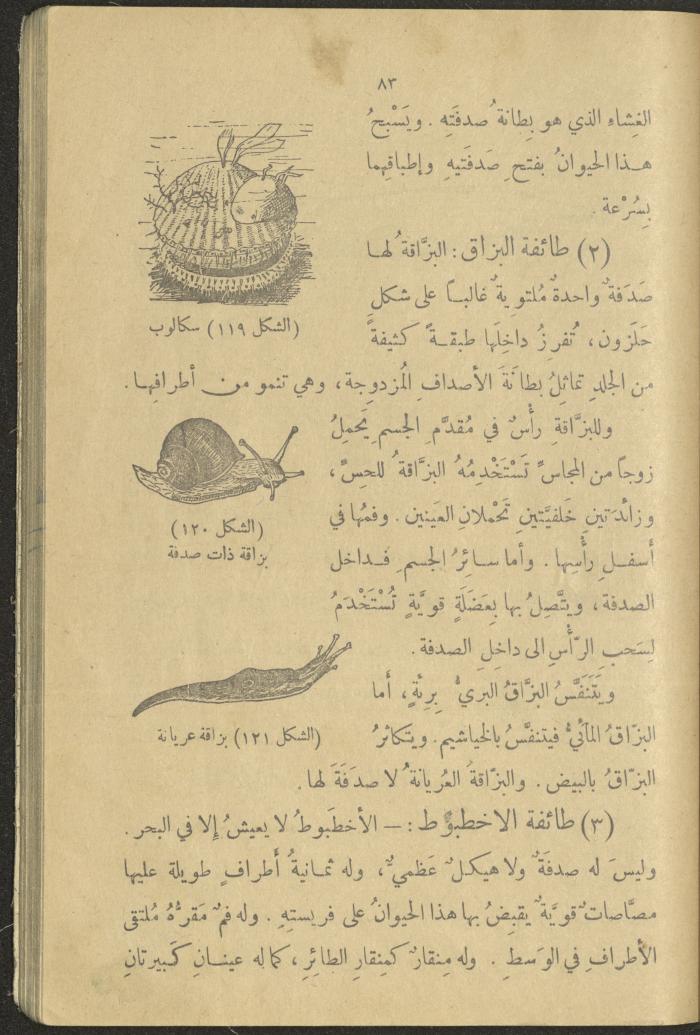 ٨٣
الغِشاء الذي هو بِطانة ُ صدفَتِه . ويَسْبحُ
هـذا الحيوانُ بفتح ِ صَدفَتيهِ وإطباقِهما
بِسُرْعة .
(٢) طائفة البزاق : البزَّاقة ُ لهـا
صَدَفة ٌ واحدة ٌ مُلتوِية ٌ غالبـاً على شكل ِ
حَلَزون ، تُفرِزُ داخِلَها طبقـة ً كثيفة ً
(الشكل ١١٩) سكالوب
من الجلدِ تماثِلُ بطانَة َ الأصدافِ المُزدوِجة ، وهي تنمو من أطرافِهـا .
وللبزَّاقةِ رأْسٌ في مُقدَّم ِ الجسم ِ يَحملُ
زوجاً من المجاسِّ تَسْتَخْدِمُهُ البزَّاقة ُ للحِسِّ ،
وزائدَتينِ خَلفيَّتينِ تَحْملانِ العَينين . وفمُها في
أسفـلِ رأْسِها . وأما سـائِرُ الجسم ِ فـداخل
الصدفة ، ويتَّصِلُ بها بِعَضَلَةٍ قويَّةٍ تُسْتَخْدَمُ
لِسَحبِ الرّأْسِ الى داخِلِ الصدفة .
(الشكل ١٢٠)
بزاقة ذات صدفة
ويَتَنَفَّسُ البزَّاقُ البري ُّ بِرِئةٍ ، أَما
البزّاقُ المآئيُّ فيتنفَّسُ بالخياشيم . ويتكاثرُ
(الشكل ١٢١) بزاقة عريانة
البزّاقُ بالبيض . والبزّاقة ُ العُريانة ُ لا صدَفَةَ لها .
(٣) طائفة الاخطبوُط : — الأخطَبوطُ لا يعيشُ إِلا في البحر .
وليسَ له صدفَة ٌ ولا هيكـل ٌ عَظمي ٌّ ، وله ثمـانية ُ أَطرافٍ طويلة عليها
مصَّاصات ٌ قويَّة ٌ يقبِضُ بها هذا الحيوانُ على فريستِهِ . وله فم ٌ مَقرُّهُ مُلتقى
الأطرافِ في الوَسطِ . وله مِنقار ٌ كمِنقارِ الطائِرِ ، كما له عينـانِ كَبيرتانِ